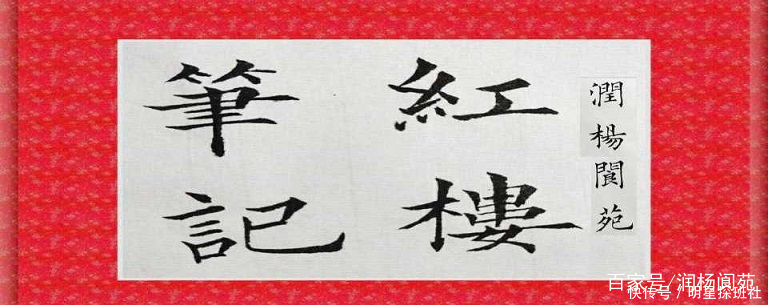 潤楊閬苑
紅樓
筆記
百家号/润杨阆苑
快传号 / 明星探班社